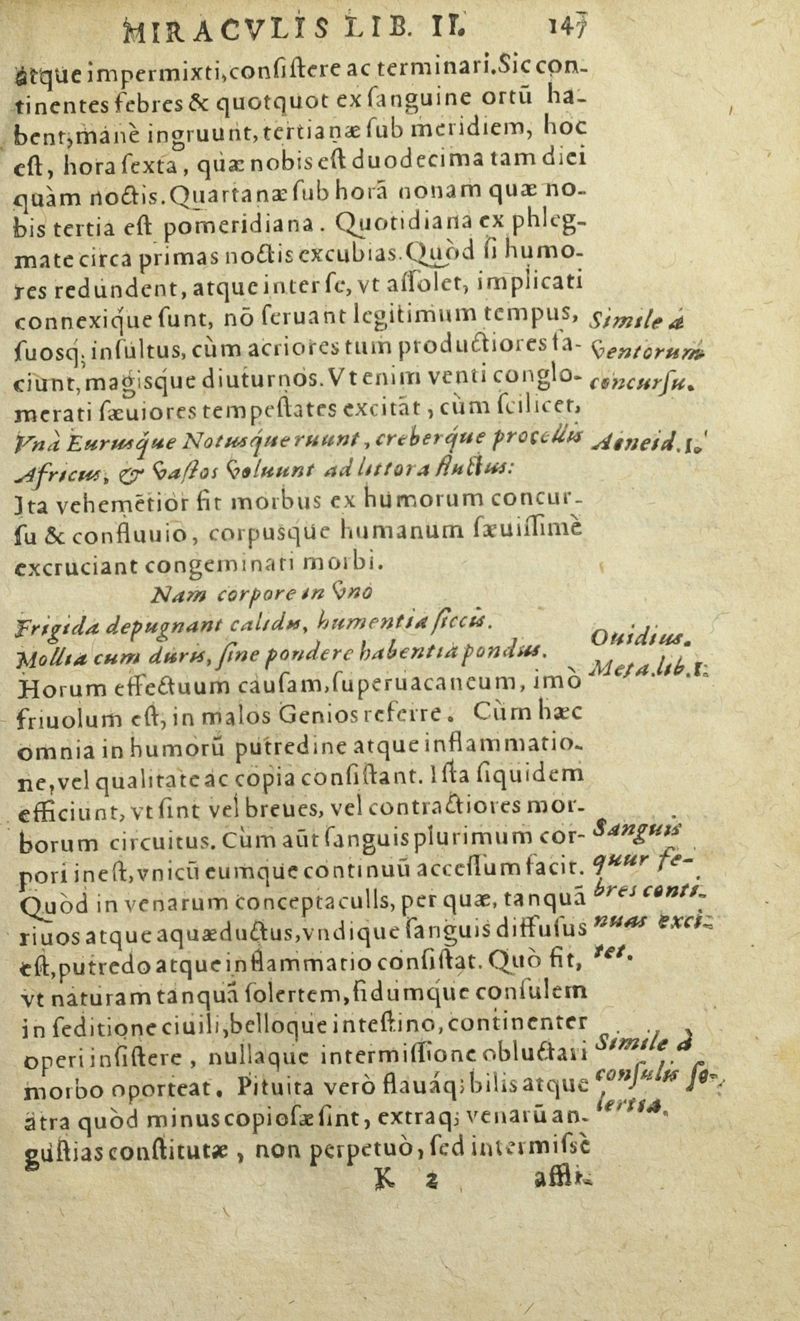 MIRACVLIS LIB. II. 147
atque impermixti,consistere ac terminari.Sic con-
tinentes febres & quotquot ex sanguine ortũ ha-
bent,manè ingruunt,tertianæ sub meridiem, hoc
est, hora sexta, quæ nobis est duodecima tam diei
quàm noctis.Quartanæ sub horã nonam quæ no-
bis tertia est pomeridiana. Quotidiana ex phleg-
mate circa primas noctis excubias.Quòd si humo-
res redundent, atque inter se, vt assolet, implicati
connexique sunt, nõ seruant legitimum tempus,
suosq; insultus, cùm acriores tum productiores fa-
ciunt, magisque diuturnos.Vt enim venti conglo-
merati sæuiores tempestates excitãt, cùm scilicet,
Vnà Eurusque Notusque ruunt, creberque procellis
Africus, & vastos voluunt ad littora fluctus:
Ita vehemẽtiòr fit morbus ex humorum concur-
su & confluuio, corpusque humanum sæuissimè
excruciant congeminati morbi.
Nam corpore in vno
Frigida depugnant calidis, humentia siccis.
Mollia cum duris, sine pondere habentia pondus.
Horum effectuum causam,superuacaneum, imò
friuolum est, in malos Genios referre. Cùm hæc
omnia in humorũ putredine atque inflammatio-
ne,vel qualitate ac copia consistant. Ista siquidem
efficiunt, vt sint vel breues, vel contractiores mor-
borum circuitus. Cùm aũt sanguis plurimum cor-
pori inest,vnicũ eumque continuũ accessum facit.
Quòd in venarum conceptaculls, per quæ, tanquã
riuos atque aquæductus,vndique sanguis diffusus
est,putredo atque inflammatio consistat. Quò fit,
vt naturam tanquã solertem,fidumque consulem
in seditione ciuili,belloque intestino,continenter
operi insistere, nullaque intermissione obluctari
morbo oporteat. Pituita verò flauáq; bilis atque
atra quòd minus copiosæ sint, extraq; venarũ an-
gustias constitutæ, non perpetuò, sed intermissè
K 2 affli-
Simile à
ventorum
concursu.
Aeneid.1.
Ouidius.
Meta.lib.1.
Sanguis
quur fe-
bres conti-
nuas exci-
tet.
Simile à
consulis so-
lertia.